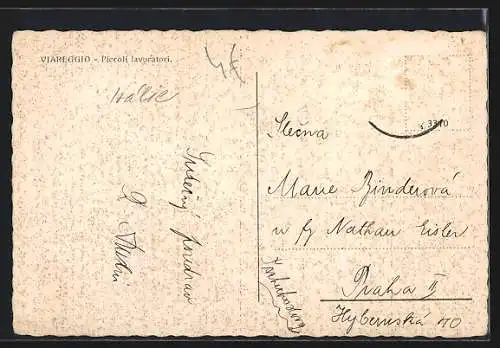 VIAREGGIO - Piccoli lavoratori.
Italie
Srdečný pozdrav
3370
Slečna
Marie Binderová
u fy Nathan Eisler
Praha II
Hybernská 40